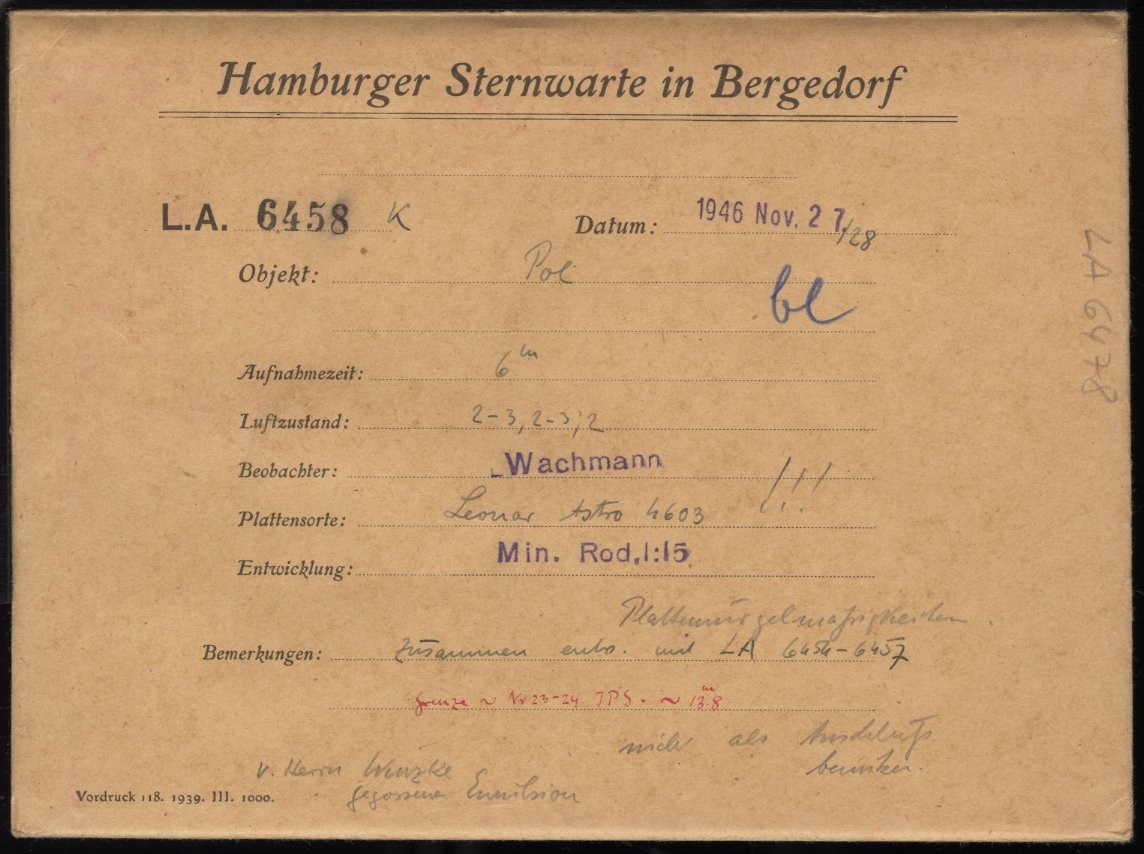 Hamburger Sternwarte in Bergedorf
L.A. 6458 K
Datum: 1946 Nov. 27/28
Objekt: Pol
bl
Aufnahmezeit: 6m
Luftzustand: 2-3, 2-3; 2
Beobachter: Wachmann
Plattensorte: Leonar Astro 4603 !!!
Entwicklung: Min. Rod. 1:15
Bemerkungen: Zusammen entw. mit LA 6454-6457
Grenze ~ Nr 23-24 IPS. ~ 13m.8
nicht als Anschluß
v. Herrn
gegossene Emulsion
Vordruck 118. 1939. III. 1000.
LA 6478